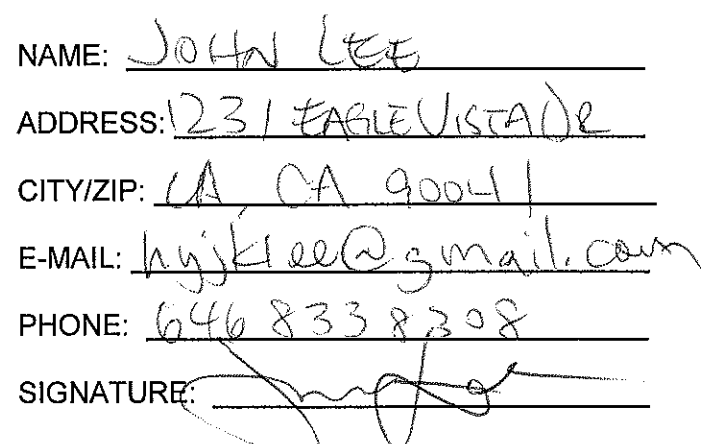 NAME: JOHN LEE
ADDRESS: 1231 EAGLE VISTA DR
CITY/ZIP: LA CA 90041
E-MAIL: hyjklee@gmail.com
PHONE: 646 833 8308
SIGNATURE: